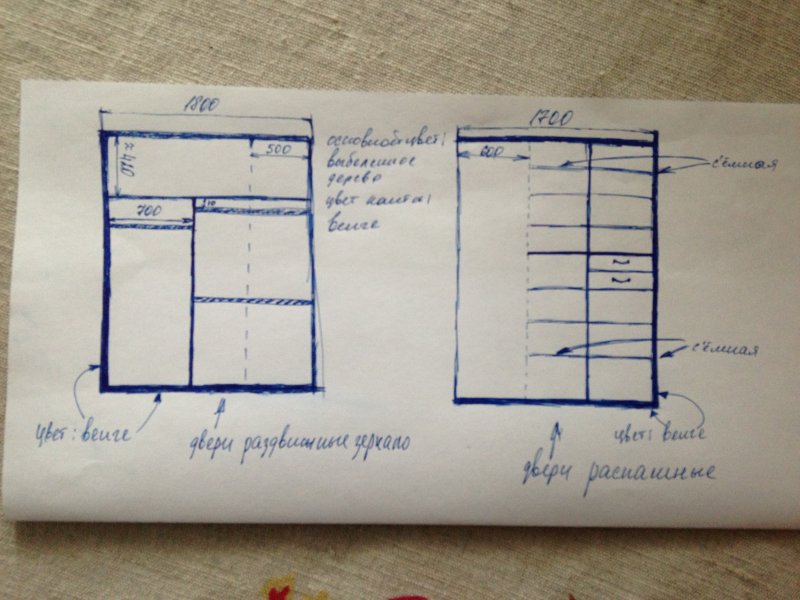 1800
≈ 420
500
700
10
основной цвет:
выбеленное
дерево
цвет канта:
венге
цвет: венге
двери раздвижные зеркало
1700
600
съёмная
съёмная
цвет: венге
двери распашные